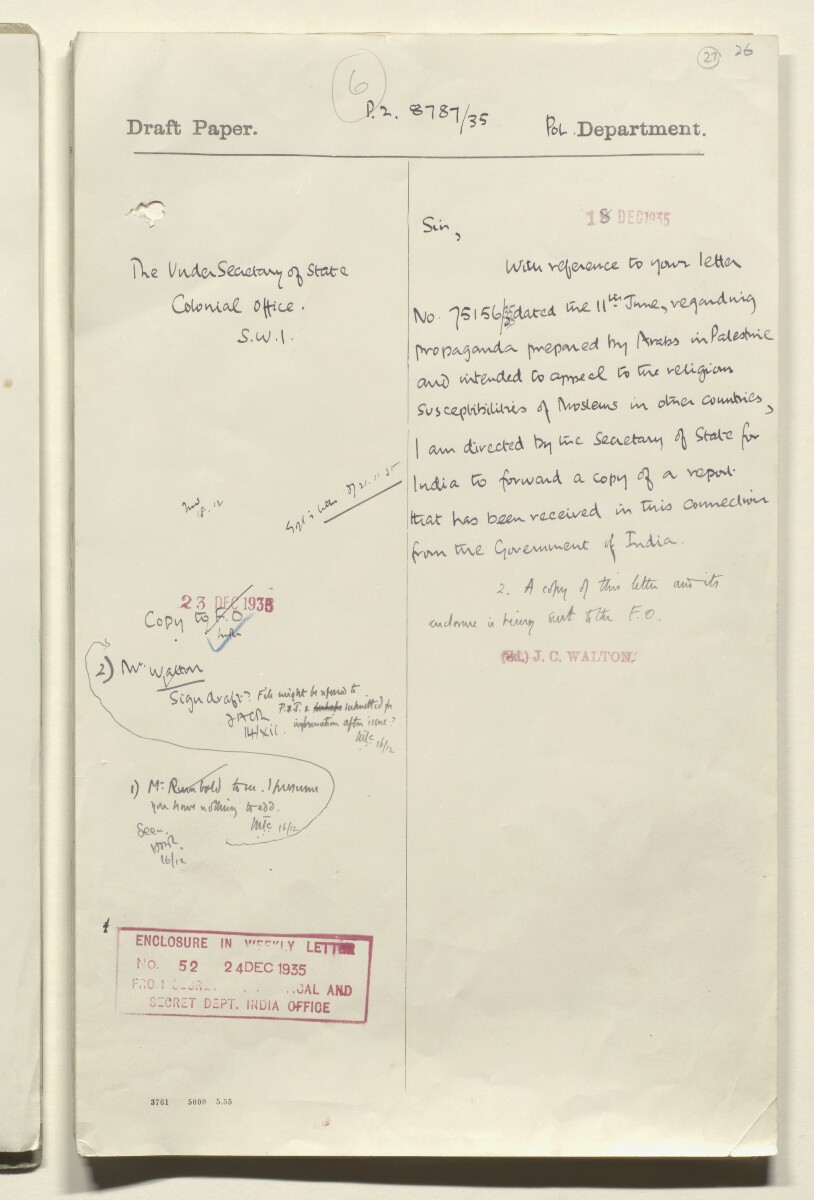 27 26
6
P.Z. 8787/35
Draft Paper.
Pol. Department.
18 DEC 1935
The Under Secretary of State
Colonial Office.
S.W.1.
Sir,
With reference to your letter
No. 75156/35 dated the 11th June, regarding
propaganda prepared by Arabs in Palestine
and intended to appeal to the religious
susceptibilities of Moslems in other countries,
I am directed by the Secretary of State for
India to forward a copy of a report
that has been received in this connection
from the Government of India.
2. A copy of this letter and its
enclosure is being sent to the F.O.
(Sd.) J. C. WALTON.
18.12
letter of 21.11.35
23 DEC 1935
Copy to F.O.
India
2) Mr. Walton
Sign draft? File might be referred to
P.&J. & perhaps submitted for
information after issue?
14/xii.
16/12
1) Mr. Rumbold to see. I presume
you have nothing to add.
16/12
Seen.
16/12
4
ENCLOSURE IN WEEKLY LETTER
NO. 52 24 DEC 1935
FROM SECRET AND
SECRET DEPT. INDIA OFFICE
3761 5000 5.35